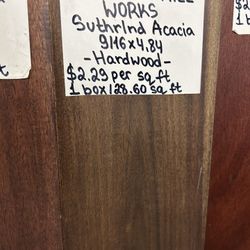 WORKS
Suthrlnd Acacia
9/16x4.84
-Hardwood-
$2.29 per sq ft
1 box/28.60 sq ft